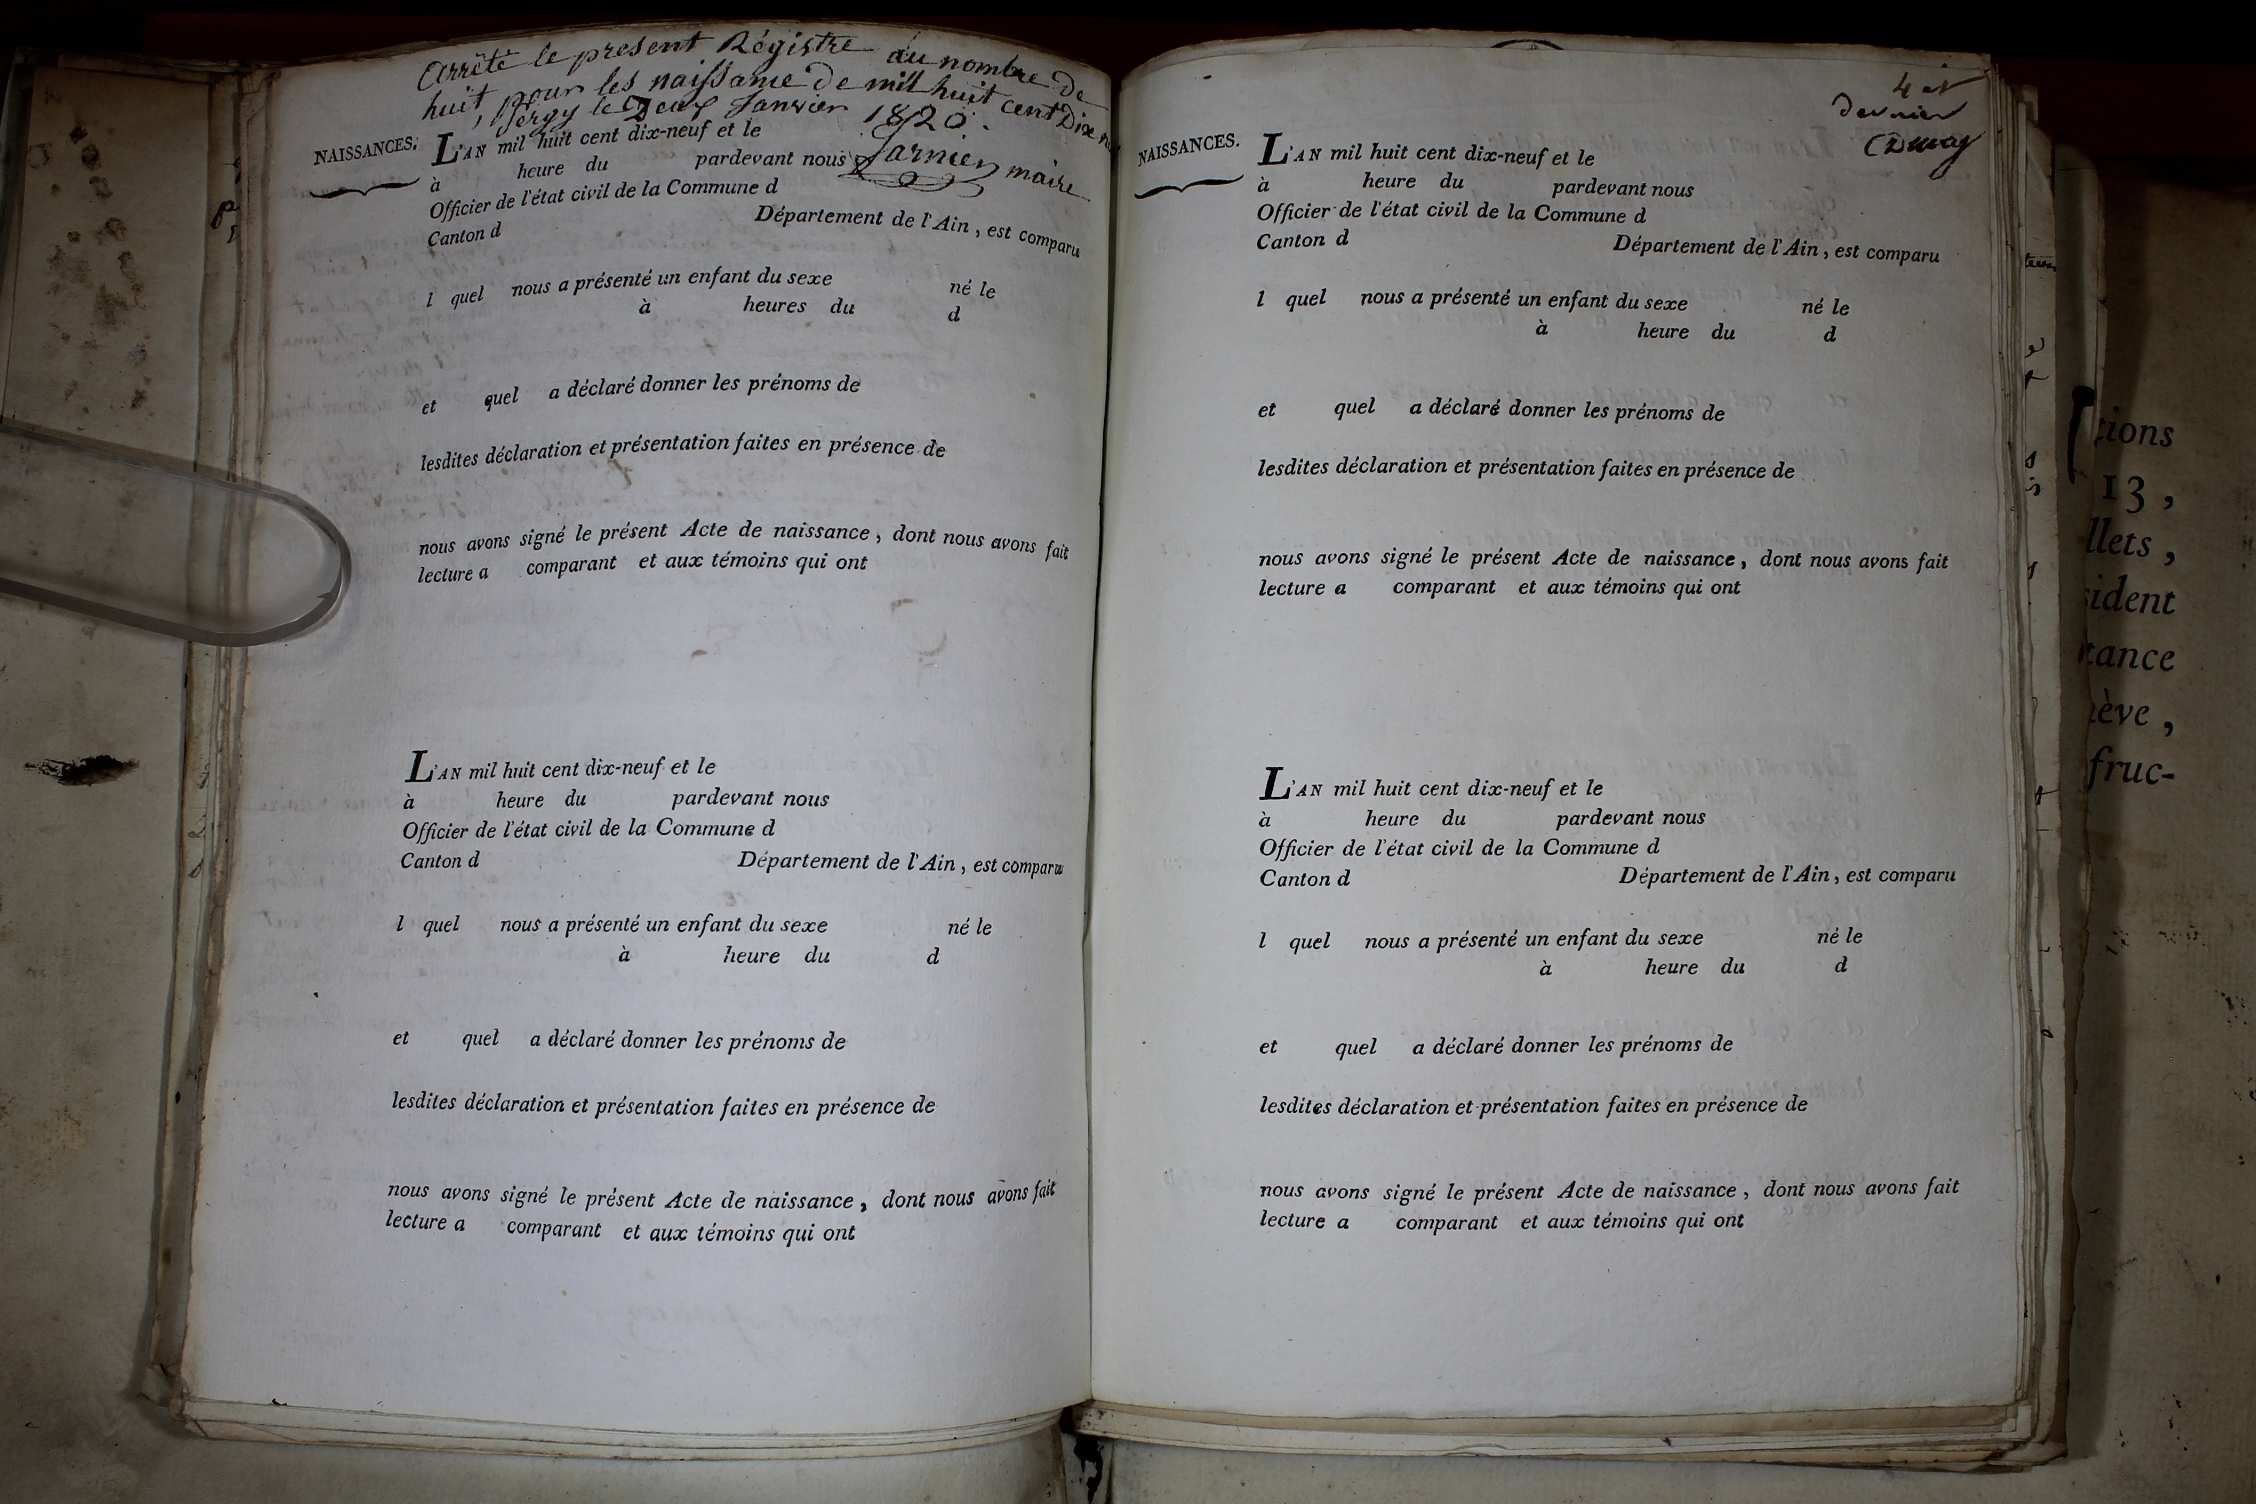 Arrêté le present Régistre au nombre de
huit, pour les naissance de mil huit cent Dix n
Sergy le Deux Janvier 1820.
NAISSANCES.
L'AN mil huit cent dix-neuf et le
à heure du pardevant nous
maire
Officier de l'état civil de la Commune d
Canton d Département de l'Ain, est comparu
l quel nous a présenté un enfant du sexe né le
à heures du d
et quel a déclaré donner les prénoms de
lesdites déclaration et présentation faites en présence de
nous avons signé le présent Acte de naissance, dont nous avons fait
lecture a comparant et aux témoins qui ont
L'AN mil huit cent dix-neuf et le
à heure du pardevant nous
Officier de l'état civil de la Commune d
Canton d Département de l'Ain, est comparu
l quel nous a présenté un enfant du sexe né le
à heure du d
et quel a déclaré donner les prénoms de
lesdites déclaration et présentation faites en présence de
nous avons signé le présent Acte de naissance, dont nous avons fait
lecture a comparant et aux témoins qui ont
4 et
dernier
NAISSANCES.
L'AN mil huit cent dix-neuf et le
à heure du pardevant nous
Officier de l'état civil de la Commune d
Canton d Département de l'Ain, est comparu
l quel nous a présenté un enfant du sexe né le
à heure du d
et quel a déclaré donner les prénoms de
lesdites déclaration et présentation faites en présence de
nous avons signé le présent Acte de naissance, dont nous avons fait
lecture a comparant et aux témoins qui ont
L'AN mil huit cent dix-neuf et le
à heure du pardevant nous
Officier de l'état civil de la Commune d
Canton d Département de l'Ain, est comparu
l quel nous a présenté un enfant du sexe né le
à heure du d
et quel a déclaré donner les prénoms de
lesdites déclaration et présentation faites en présence de
nous avons signé le présent Acte de naissance, dont nous avons fait
lecture a comparant et aux témoins qui ont
tions
13,
llets,
sident
tance
ève,
fruc-